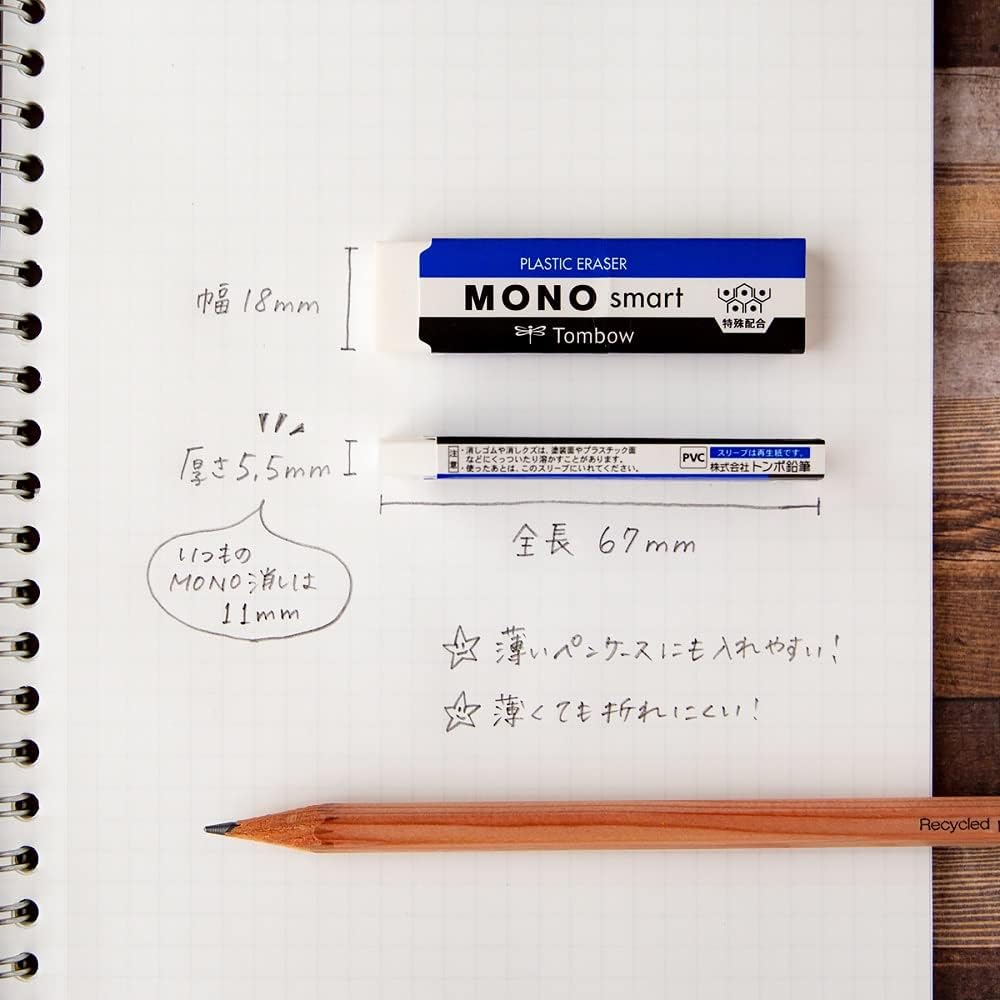 PLASTIC ERASER
MONO smart
Tombow
特殊配合
幅 18mm
厚さ 5.5mm
注意
・消しゴムや消しクズは、塗装面やプラスチック面
などにくっついたり溶かすことがあります。
・使ったあとは、このスリーブにいれてください。
PVC
スリーブは再生紙です。
株式会社 トンボ鉛筆
全長 67mm
いつもの
MONO消しは
11mm
薄いペンケースにも入れやすい!
薄くても折れにくい!
Recycled